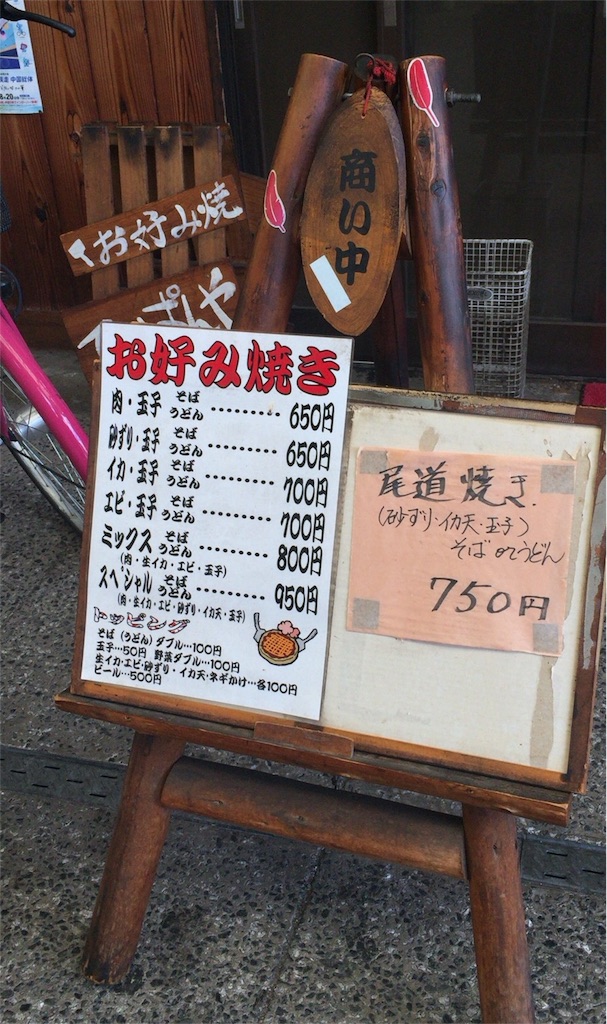 商い中
お好み焼
てっぱんや
お好み焼き
肉・玉子 そば うどん ……… 650円
砂ずり・玉子 そば うどん ……… 650円
イカ・玉子 そば うどん ……… 700円
エビ・玉子 そば うどん ……… 700円
ミックス そば うどん ……… 800円
(肉・生イカ・エビ・玉子)
スペシャル そば うどん ……… 950円
(肉・生イカ・エビ・砂ずり・イカ天・玉子)
トッピング
そば(うどん)ダブル…100円
玉子…50円 野菜ダブル…100円
生イカ・エビ・砂ずり・イカ天・ネギかけ…各100円
ビール……500円
尾道焼き
(砂ずり・イカ天・玉子)
そばorうどん
750円